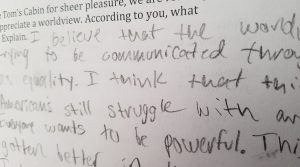 Tom's Cabin for sheer pleasure, we are
appreciate a worldview. According to you, what
Explain. I believe that the world
trying to be communicated throu
is equality. I think that thi
Americans still struggle with an
Everyone wants to be powerful. Th
gotten better